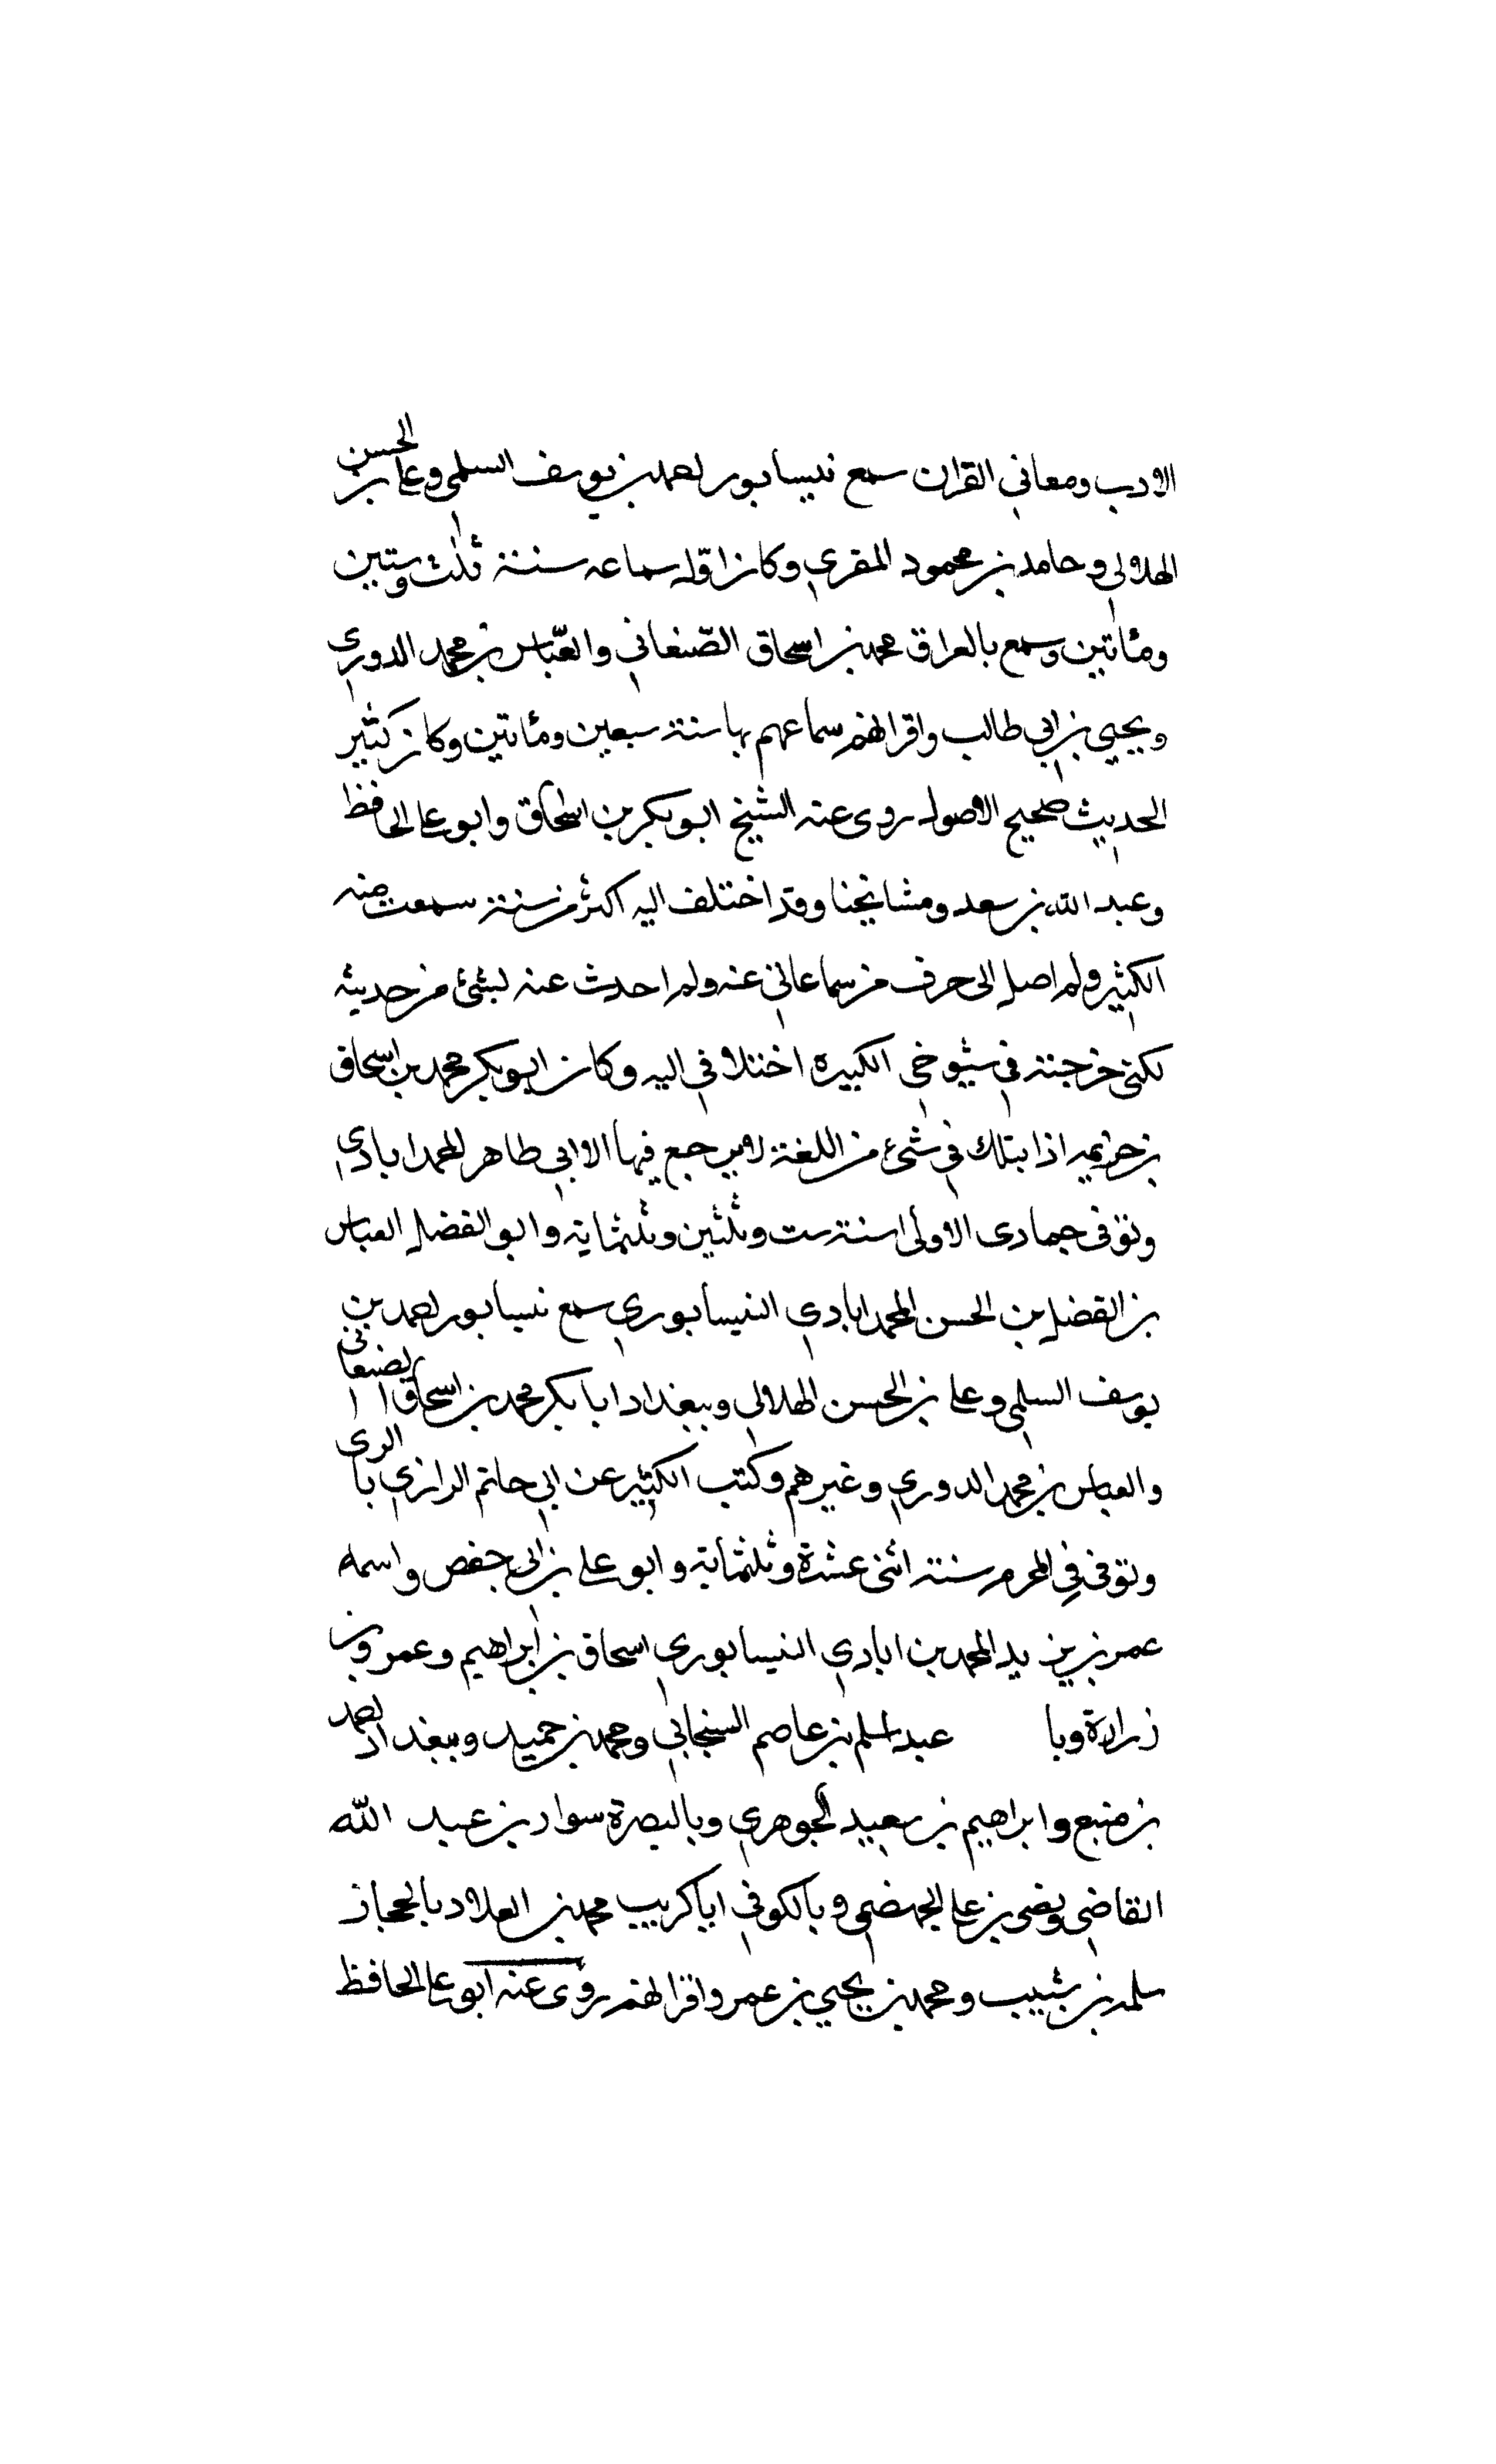 الادب ومعاني القران سمع نيسابور احمد بن يوسف السلمي وعلي بن الحسن
الهلالي وحامد بن محمود المقري وكان اول سماعه سنة ثلث وستين
ومأتين وسمع بالعراق محمد بن اسحاق الصّنعاني والعبّاس بن محمد الدوري
ويحيي بن ابي طالب واقرانهم سماعهم بها سنة سبعين ومأتين وكان كثير
الحديث صحيح الاصول روى عنه الشيخ ابو بكر بن اسحاق وابو علي الحافظ
وعبد الله بن سعد ومشايخنا وقد اختلف اليه اكثر من سنة سمعت منه
الكثير ولم اصل الى حرف من سماعاتي عنه ولم احدث عنه بشئ من حديثه
لكني خرجته في شيوخي الكبيره اختلافي اليه وكان ابو بكر محمد بن اسحاق
بن خزيمه اذا بتلك في شئ من اللغة لا يرجع فيها الا ابي طاهر المحمدابادي
وتوفى جمادى الاولى سنة ست وثلثين وثلثماية وابو الفضل العباس
بن الفضل بن الحسن المحمدابادي النيسابوري سمع نيسابور احمد بن
يوسف السلمي وعلي بن الحسن الهلالي وببغداد ابا بكر محمد بن اسحاق الصنعانى
والعباس بن محمد الدوري وغيرهم وكتب الكثير عن ابي حاتم الرازي بالرى
وتوفى في المحرم سنة اثنى عشرة وثلثماية وابو علي بن ابي جفص واسمه
عمر بن يزيد المحمد بن ابادي النيسابوري اسحاق بن ابراهيم وعمرو بن
زرارة وبا عبد السلم بن عاصم السنجابي ومحمد بن حميد وببغداد احمد
بن منبع وابراهيم بن سعيد الجوهري وبالبصرة سوار بن عبد الله
القاضي ونضى بن علي الجهضمي وبالكوفي ابا كريب محمد بن العلاد بالحجاز
سلمه بن شبيب ومحمد بن يحيي بن عمر واقرانهم روى عنه ابو علي الحافظ